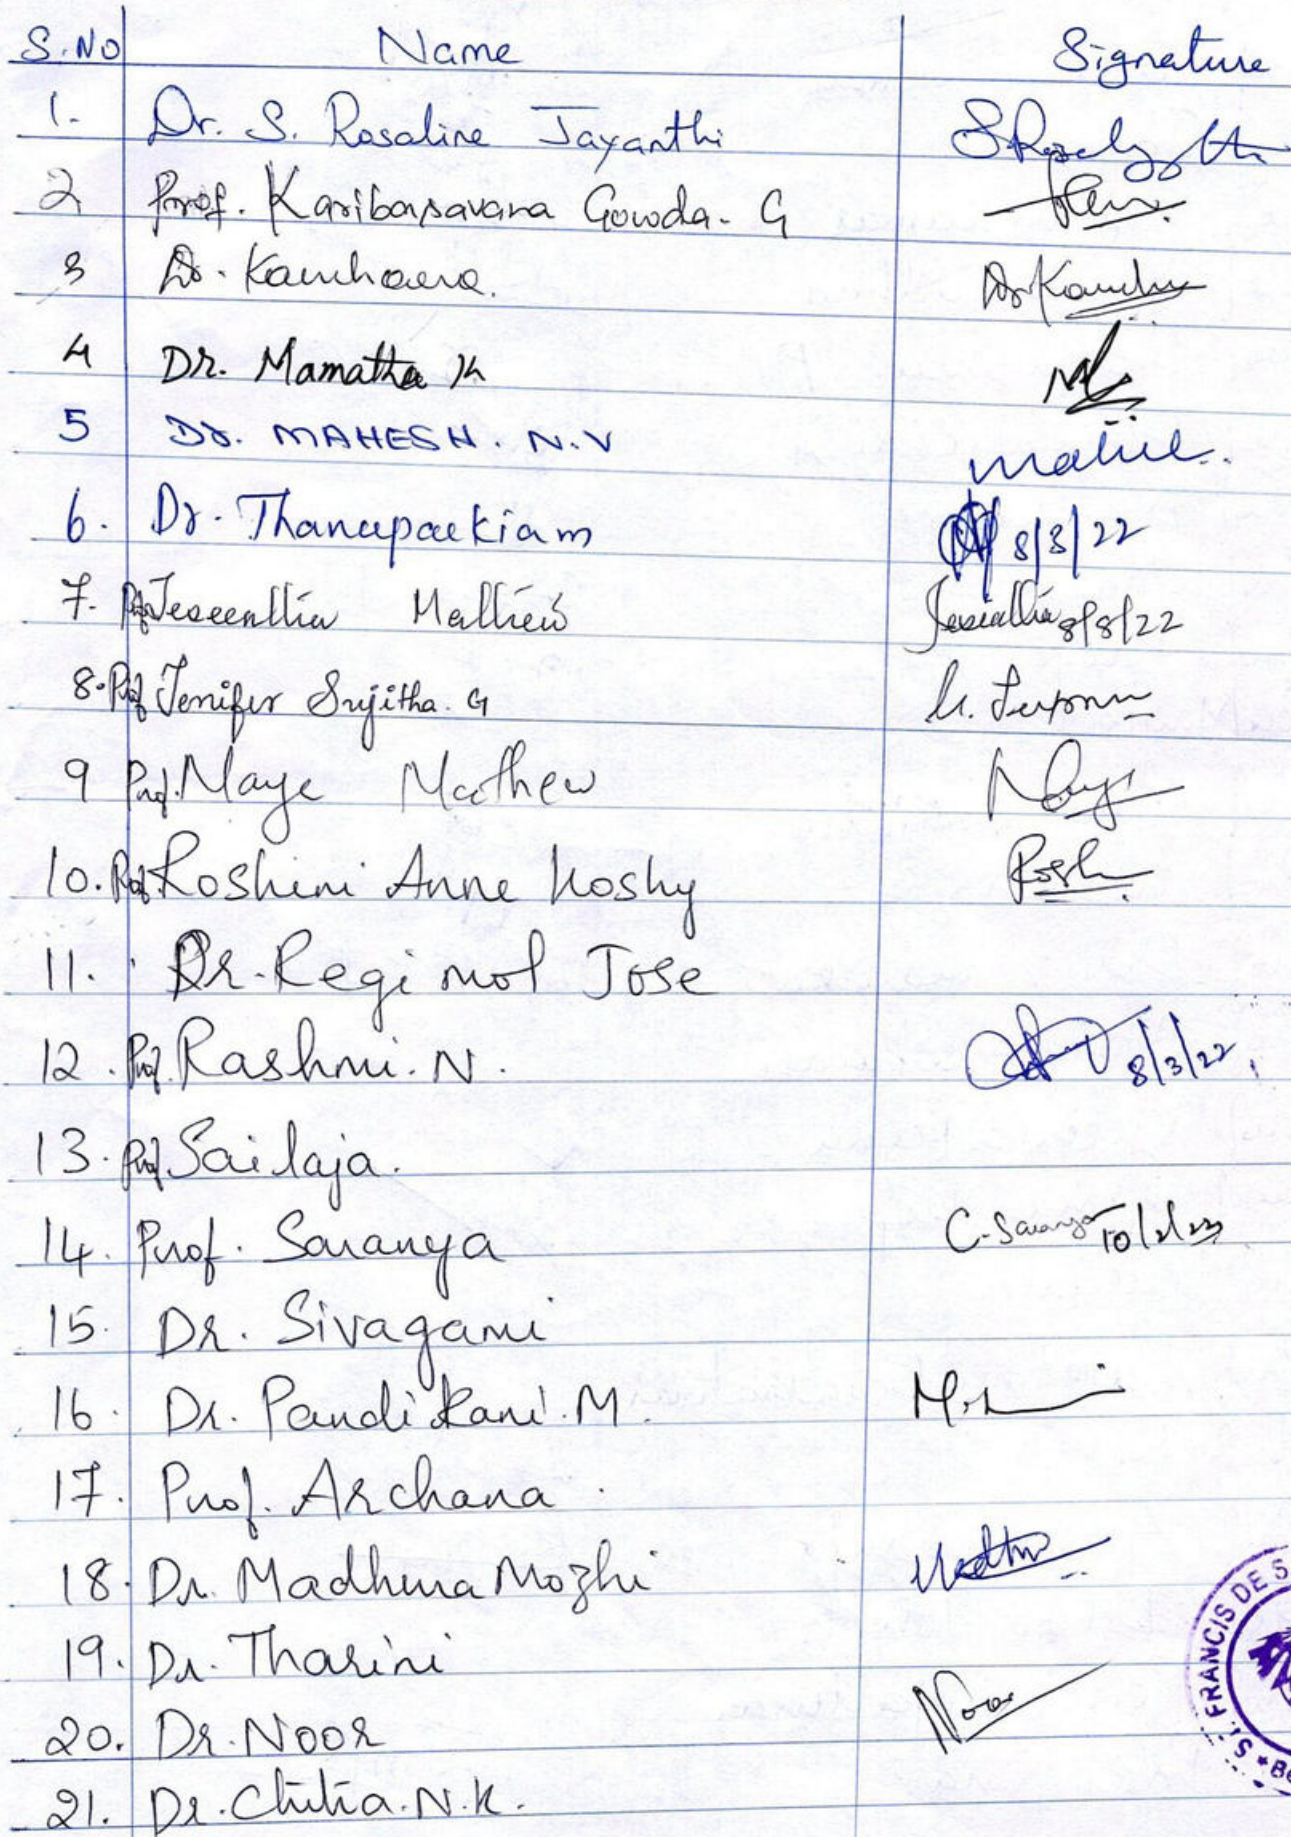 S.No Name Signature
1. Dr. S. Rosaline Jayanthi
2 Prof. Karibasavana Gowda. G
3 Dr. Kanchana.
4 Dr. Mamatha K
5 Dr. MAHESH. N.V
6. Dr. 8/3/22
7. Prof 8/8/22
8. Prof Jenifer Sujitha. G
9 Prof. Maye Mathew
10. Prof. Roshini Anne Koshy Rosh
11. Dr. Regi mol Jose
12. Prof. Rashmi. N. 8/3/22
13. Prof Sailaja.
14. Prof. Saranya C. Saranya
15. Dr. Sivagami
16. Dr. Pandi Rani. M.
17. Prof. Archana.
18. Dr. Madhura Mozhi
19. Dr. Tharini
20. Dr. Noor Noor
21. Dr. Chitra. N.K.
ST. FRANCIS DE S